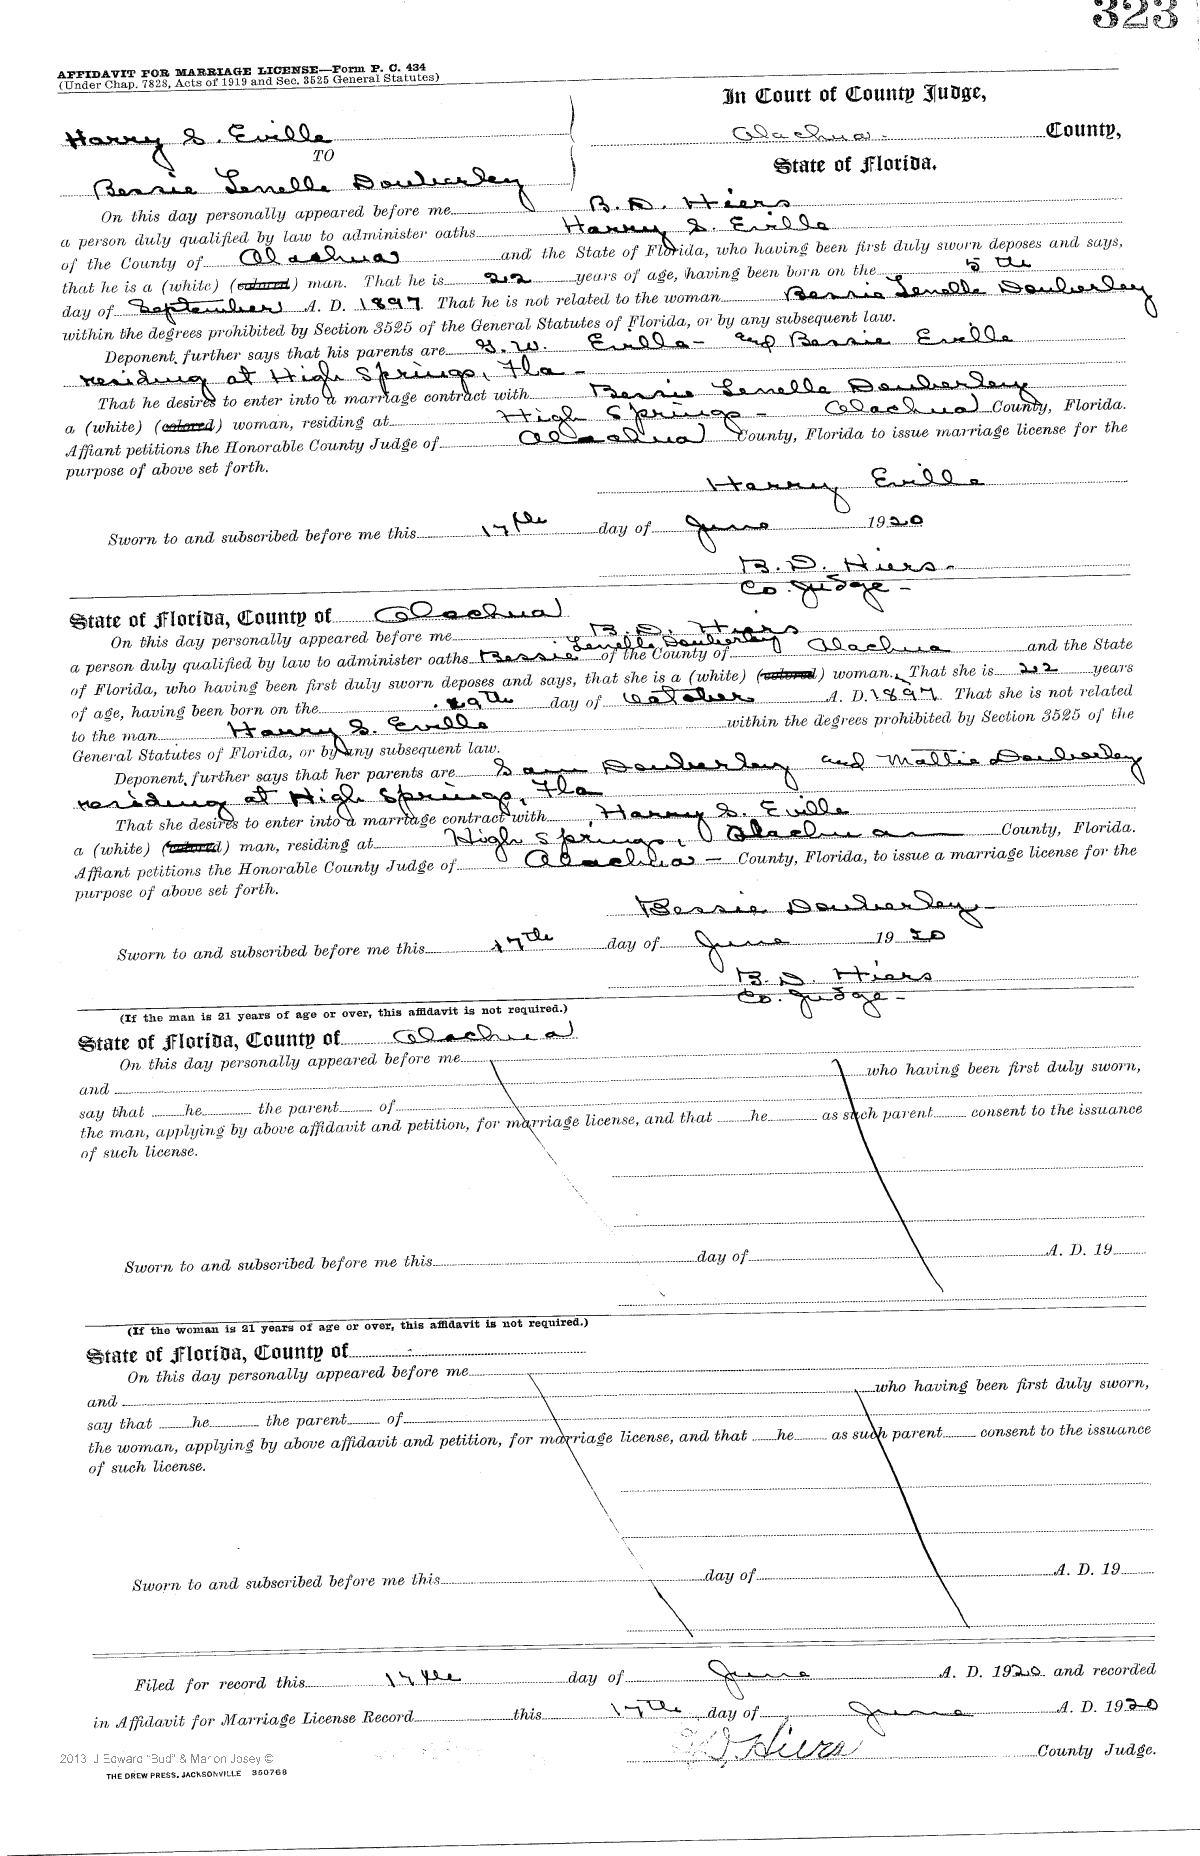 323
AFFIDAVIT FOR MARRIAGE LICENSE—Form P. C. 434
(Under Chap. 7828, Acts of 1919 and Sec. 3525 General Statutes)
In Court of County Judge,
Harry S. Eville
Alachua County,
TO
State of Florida.
Bessie Lenelle Douberley
On this day personally appeared before me B. D. Hiers
a person duly qualified by law to administer oaths Harry S. Eville
of the County of Alachua and the State of Florida, who having been first duly sworn deposes and says,
that he is a (white) (colored) man. That he is 22 years of age, having been born on the 5th
day of September A. D. 1897 That he is not related to the woman Bessie Lenelle Douberley
within the degrees prohibited by Section 3525 of the General Statutes of Florida, or by any subsequent law.
Deponent further says that his parents are G. W. Eville and Bessie Eville
residing at High Springs, Fla
That he desires to enter into a marriage contract with Bessie Lenelle Douberley
a (white) (colored) woman, residing at High Springs - Alachua County, Florida.
Affiant petitions the Honorable County Judge of Alachua County, Florida to issue marriage license for the
purpose of above set forth.
Harry Eville
Sworn to and subscribed before me this 17th day of June 1920
B. D. Hiers
Co. Judge
State of Florida, County of Alachua
On this day personally appeared before me B. D. Hiers
a person duly qualified by law to administer oaths Bessie Lenelle Douberley of the County of Alachua and the State
of Florida, who having been first duly sworn deposes and says, that she is a (white) (colored) woman. That she is 22 years
of age, having been born on the 29th day of October A. D. 1897. That she is not related
to the man Harry S. Eville within the degrees prohibited by Section 3525 of the
General Statutes of Florida, or by any subsequent law.
Deponent further says that her parents are Sam Douberley and Mattie Douberley
residing at High Springs, Fla
That she desires to enter into a marriage contract with Harry S. Eville
a (white) (colored) man, residing at High Springs, Alachua County, Florida.
Affiant petitions the Honorable County Judge of Alachua - County, Florida, to issue a marriage license for the
purpose of above set forth.
Bessie Douberley
Sworn to and subscribed before me this 17th day of June 1920
B. D. Hiers
Co. Judge
(If the man is 21 years of age or over, this affidavit is not required.)
State of Florida, County of Alachua
On this day personally appeared before me
and who having been first duly sworn,
say that he the parent of
the man, applying by above affidavit and petition, for marriage license, and that he as such parent consent to the issuance
of such license.
Sworn to and subscribed before me this day of A. D. 19
(If the woman is 21 years of age or over, this affidavit is not required.)
State of Florida, County of
On this day personally appeared before me
and who having been first duly sworn,
say that he the parent of
the woman, applying by above affidavit and petition, for marriage license, and that he as such parent consent to the issuance
of such license.
Sworn to and subscribed before me this day of A. D. 19
Filed for record this 17th day of June A. D. 1920 and recorded
in Affidavit for Marriage License Record this 17th day of June A. D. 1920
B D Hiers County Judge.
2013 J Edward "Bud" & Marion Josey ©
THE DREW PRESS, JACKSONVILLE 350768